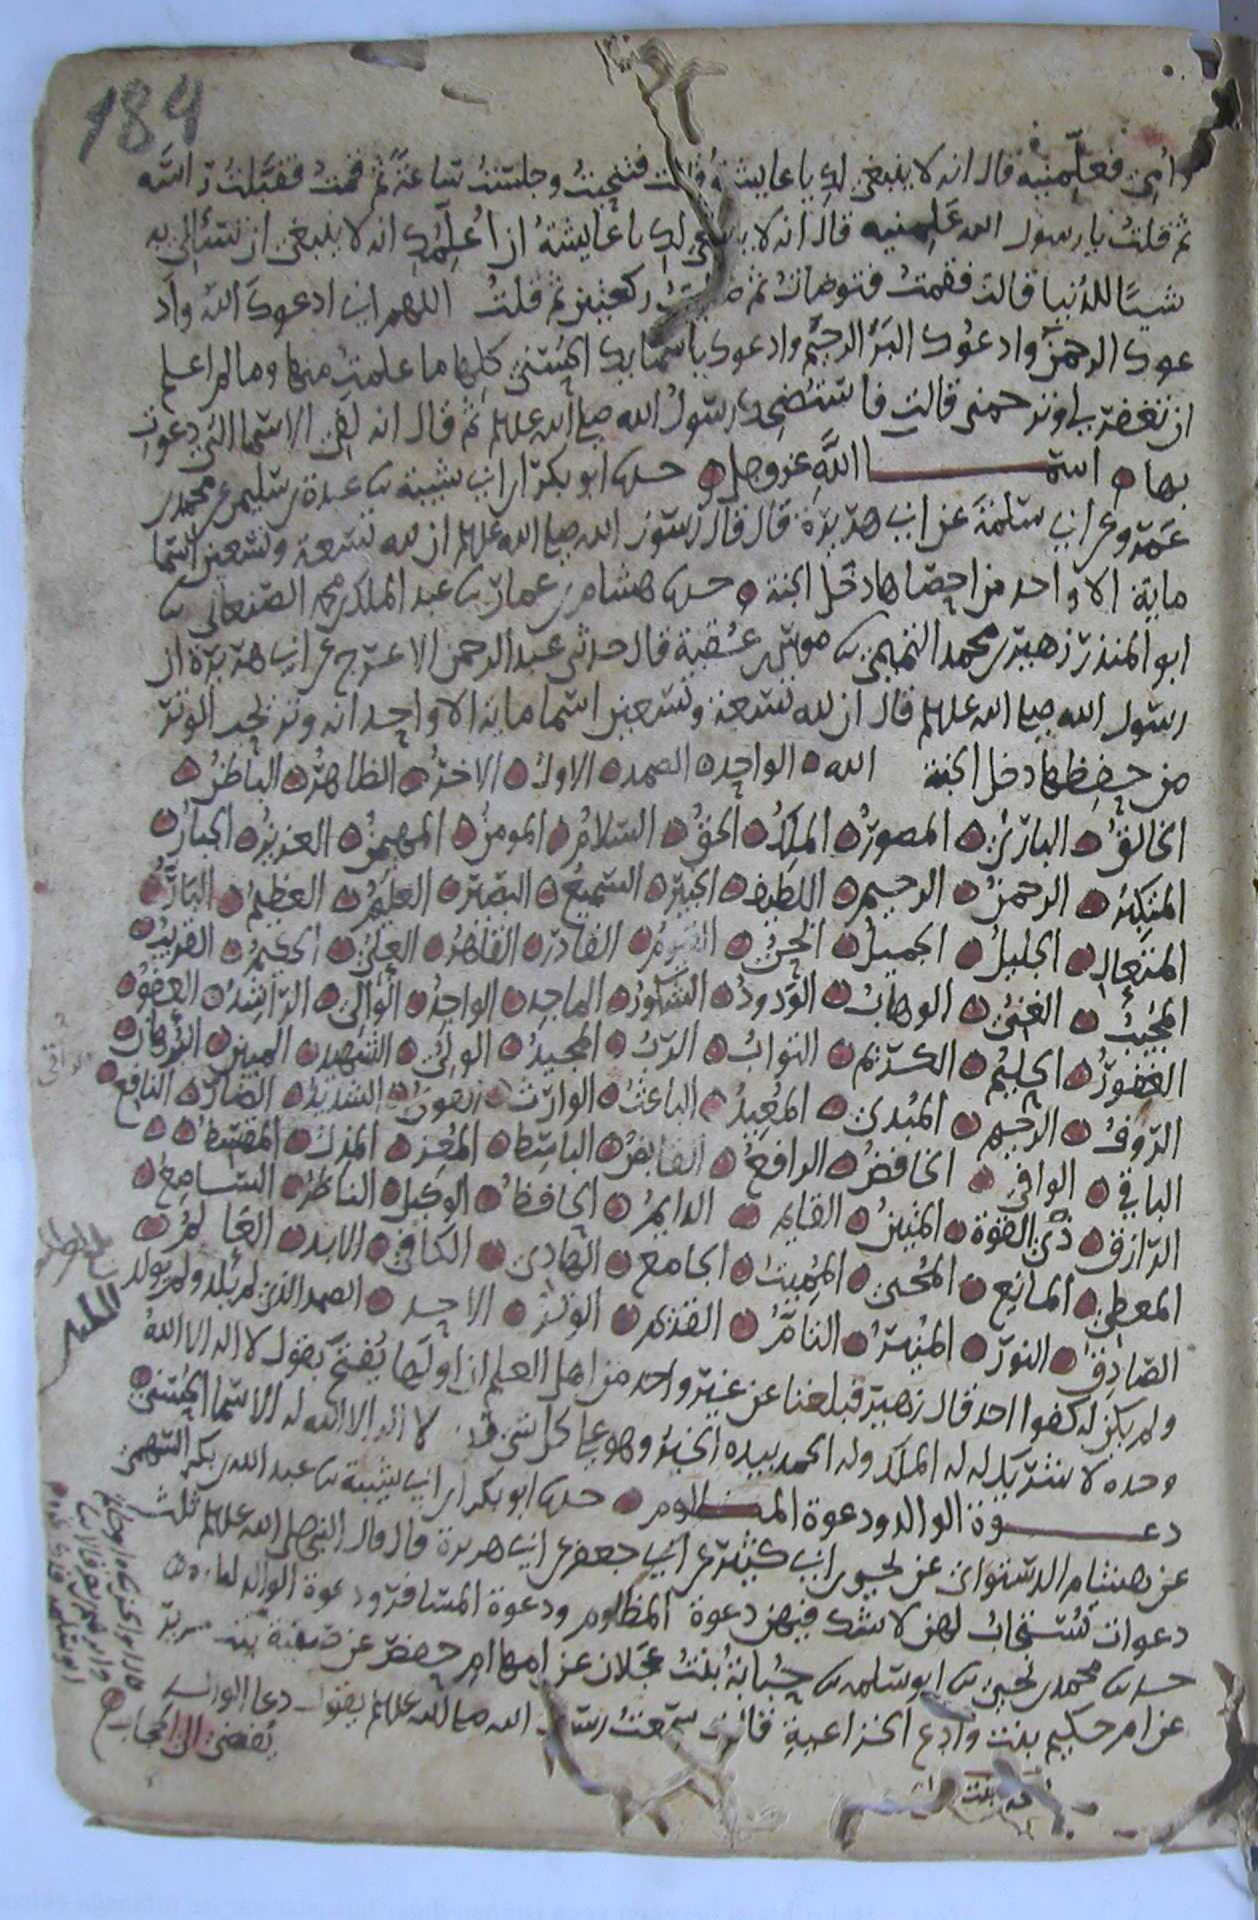 184
وامي فعلمنيه قال انه لا ينبغي لك يا عايشة قالت فتنحيت وجلست ساعة ثم قمت فقبلت راسه
ثم قلت يا رسول الله علمنيه قال انه لا ينبغي لك يا عايشة ان اعلمك انه لا ينبغي ان تسألي به
شيا للدنيا قالت فقمت فتوضات ثم صليت ركعتين ثم قلت اللهم اني ادعوك الله واد
عوك الرحمن وادعوك البر الرحيم وادعوك باسمايك الحسنى كلها ما علمت منها وما لم اعلم
ان تغفر لي وترحمني قالت فاستضحك رسول الله صلى الله عليه وسلم ثم قال انه لفي الاسما التي دعوت
بها اسما الله عز وجل حدثنا ابو بكر ابن ابي شيبة ثنا عبدة بن سليمن عن محمد بن
عمرو عن ابي سلمة عن ابي هريرة قال قال رسول الله صلى الله عليه وسلم ان لله تسعة وتسعين اسما
ماية الا واحد من احصاها دخل الجنة حدثنا هشام بن عمار ثنا عبد الملك بن محمد الصنعاني ثنا
ابو المنذر زهير بن محمد التميمي ثنا موسى بن عقبة قال حدثني عبد الرحمن الاعرج عن ابي هريرة ان
رسول الله صلى الله عليه وسلم قال ان لله تسعة وتسعين اسما ماية الا واحد انه وتر يحب الوتر
من حفظها دخل الجنة الله الواحد الصمد الاول الاخر الظاهر الباطن
الخالق الباري المصور الملك الحق السلام المومن المهيمن العزيز الجبار
المتكبر الرحمن الرحيم اللطيف الخبير السميع البصير العليم العظيم البار
المتعال الجليل الجميل الحي القيوم القادر القاهر العلي الحكيم القريب
المجيب الغني الوهاب الودود الشكور الماجد الواجد الوالي الراشد العفو
الغفور الحليم الكريم التواب الرب المجيد الولي الشهيد المبين البرهان
الروف الرحيم المبدي المعيد الباعث الوارث القوي الشديد الضار النافع
الباقي الوافي الخافض الرافع القابض الباسط المعز المذل المقسط
الرزاق ذي القوة المتين القايم الدايم الحافظ الوكيل الناظر السامع
المعطي المانع المحيي المميت الجامع الهادي الكافي الابد العالم
الصادق النور المنير التام القديم الوتر الاحد الصمد الذي لم يلد ولم يولد
ولم يكن له كفوا احد قال زهير فبلغنا عن غير واحد من اهل العلم ان اولها يفتح بقول لا اله الا الله
وحده لا شريك له له الملك وله الحمد بيده الخير وهو على كل شي قدير لا اله الا الله له الاسما الحسنى
دعوة الوالد ودعوة المظلوم حدثنا ابو بكر ابن ابي شيبة ثنا عبد الله بن بكر السهمي
عن هشام الدستواي عن يحيى بن ابي كثير عن ابي جعفر عن ابي هريرة قال قال النبي صلى الله عليه وسلم ثلث
دعوات تستجاب لهن لا شك فيهن دعوة المظلوم ودعوة المسافر ودعوة الوالد لولده
حدثنا محمد بن يحيى ثنا ابو سلمه ثنا حبابة بنت عجلان عن امها ام حفص عن صفية بنت جرير
عن ام حكيم بنت وادع الخزاعية قالت سمعت رسول الله صلى الله عليه وسلم يقول دعا الوالد
يفضي الى الحجاب